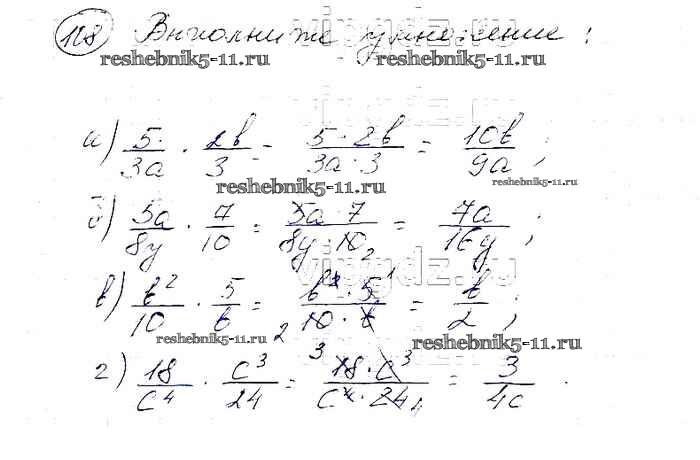 108 Выполните умножение:
reshebnik5-11.ru reshebnik5-11.ru
а) 5/3a · 2b/3 = 5·2b/3a·3 = 10b/9a ;
reshebnik5-11.ru reshebnik5-11.ru
б) 5a/8y · 7/10 = 5a·7/8y·10 2 = 7a/16y ;
vipgdz.ru
в) b²/10 · 5/b = b²·5 1/2 10·b = b/2 ;
reshebnik5-11.ru reshebnik5-11.ru
г) 18/c⁴ · c³/24 = 3 18·c³/c⁴·24 4 = 3/4c .